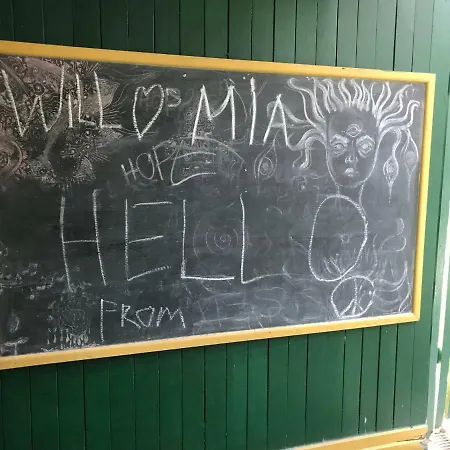 WILL ♡s MIA
HOPE
HELLO
FROM